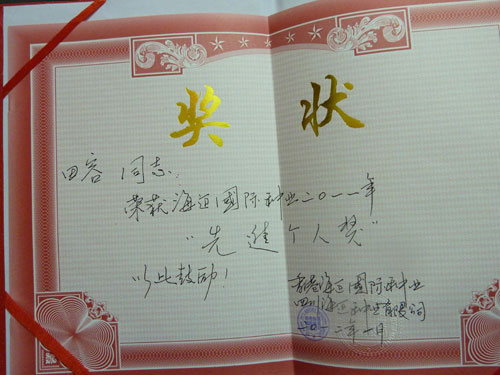 奖 状
田容 同志:
荣获海迈国际种业二〇一一年
"先进个人奖"
以此鼓励!
海迈国际种业
四川海迈种业有限公司
二〇一二年一月